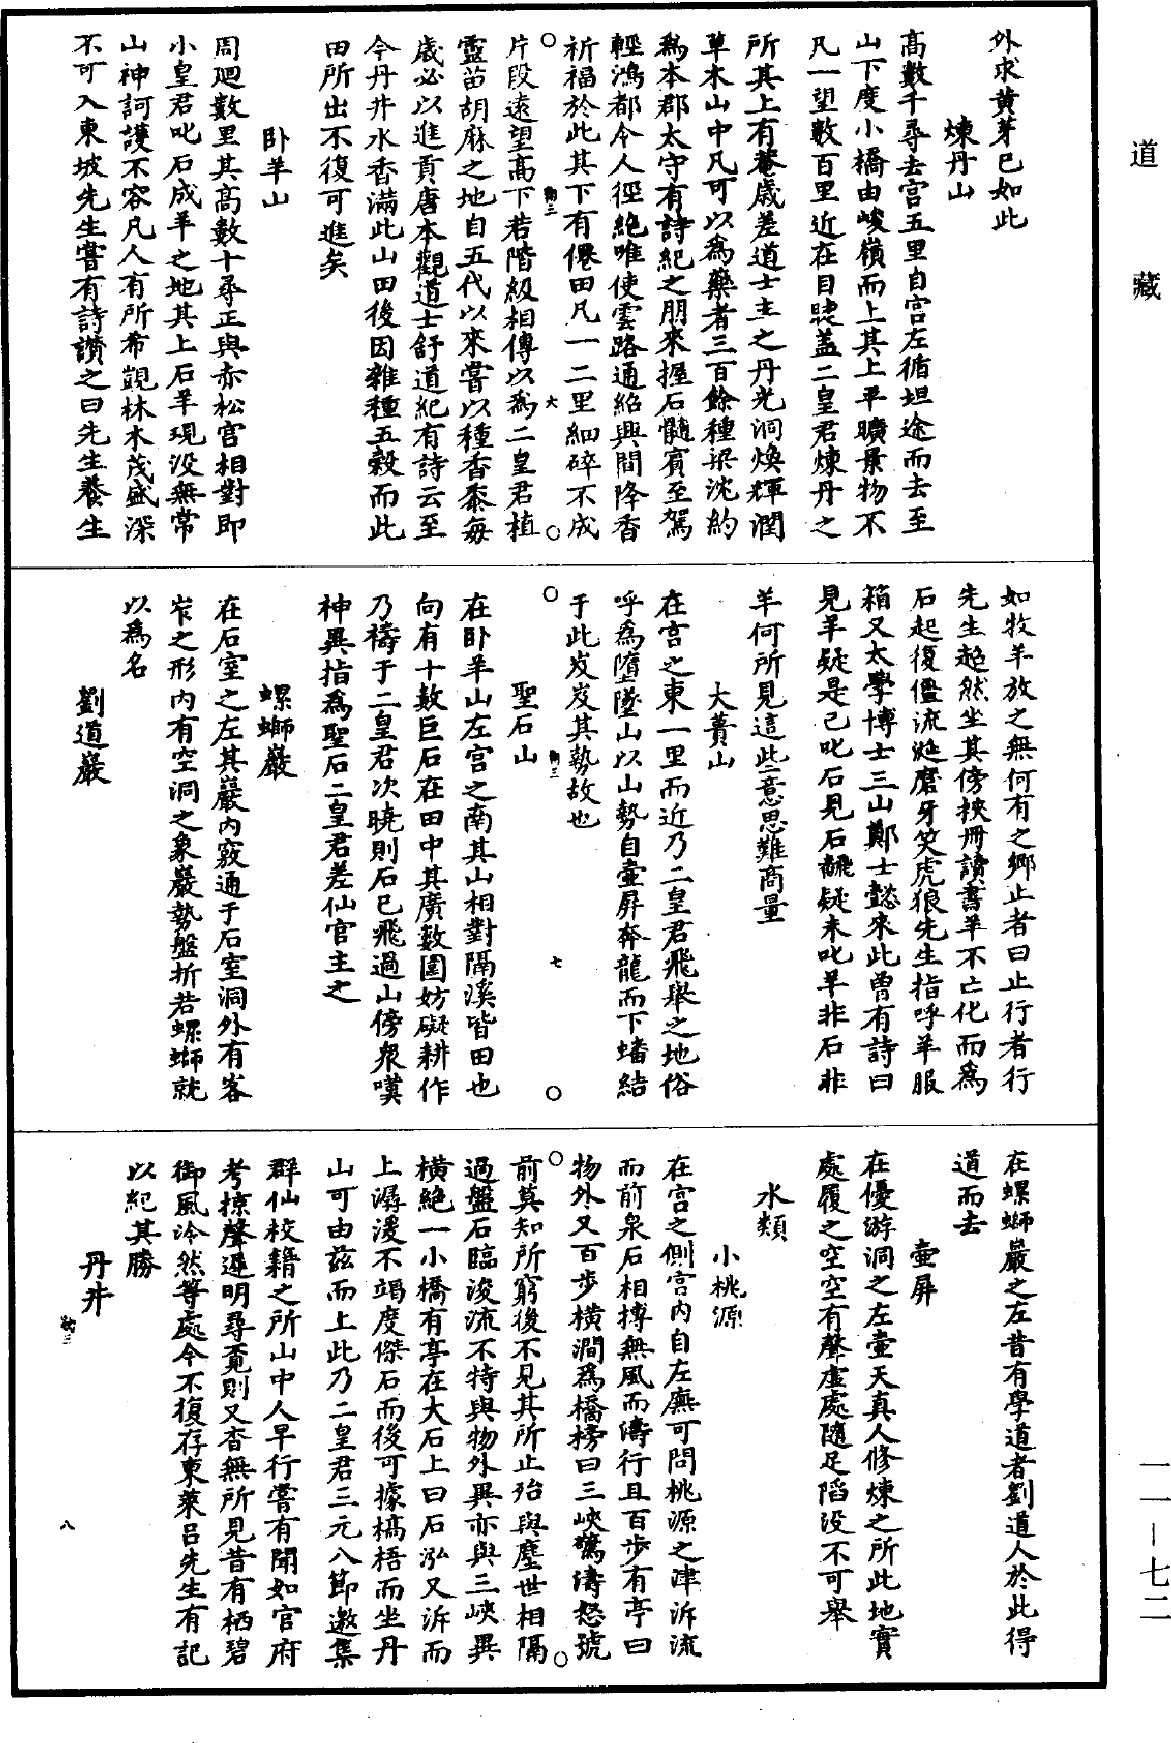 道藏
外求黄芽已如此
煉丹山
高數千尋去宫五里自宫左循坦途而去至
山下度小橋由峻嶺而上其上平曠景物不
凡一望數百里近在目睫盖二皇君煉丹之
所其上有菴歳差道士主之丹光洞焕輝潤
草木山中凡可以為藥者三百餘種梁沈約
為本郡太守有詩紀之朋來握石髓賓至駕
輕鴻都今人徑絶唯使雲路通紹興間降香
祈福於此其下有僊田凡一二里細碎不成
片段遠望高下若階級相傳以為二皇君植
靈苗胡麻之地自五代以來嘗以種香黍每
歳必以進貢唐本觀道士舒道紀有詩云至
今丹井水香滿此山田後因雜種五穀而此
田所出不復可進矣
卧羊山
周廻數里其高數十尋正與赤松宫相對即
小皇君叱石成羊之地其上石羊現没無常
山神訶護不容凡人有所希覬林木茂盛深
不可入東坡先生嘗有詩讃之曰先生養生
如牧羊放之無何有之鄉止者曰止行者行
先生超然坐其傍挾冊讀書羊不亡化而為
石起復僵流涎磨牙笑虎狼先生指呼羊服
箱又太學博士三山鄭士懿來此曾有詩曰
見羊疑是已叱石見石飜疑未叱羊非石非
羊何所見這些意思難商量
大蕢山
在宫之東一里而近乃二皇君飛舉之地俗
呼為墮墜山以山勢自壷屏奔龍而下蟠結
于此岌岌其勢故也
聖石山
在卧羊山左宫之南其山相對隔溪皆田也
向有十數巨石在田中其廣數圍妨礙耕作
乃禱于二皇君次曉則石已飛過山傍衆嘆
神異指為聖石二皇君差仙官主之
螺螄巖
在石室之左其巖内竅通于石室洞外有客
岝之形内有空洞之象巖勢盤折若螺螄就
以為名
劉道巖
在螺螄巖之左昔有學道者劉道人於此得
道而去
壷屏
在優游洞之左壷天真人修煉之所此地實
處履之空空有聲虚處隨足陷没不可舉
水類
小桃源
在宫之側宫内自左廡可問桃源之津泝流
而前泉石相搏無風而濤行且百步有亭曰
物外又百步横澗為橋榜曰三峽驚濤怒號
前莫知所窮後不見其所止殆與塵世相隔
過盤石臨浚流不特與物外異亦與三峽異
横絶一小橋有亭在大石上曰石泓又泝而
上潺湲不竭度傑石而後可據槁梧而坐丹
山可由兹而上此乃二皇君三元八節邀集
群仙校籍之所山中人早行嘗有聞如官府
考掠聲遲明尋覔則又杳無所見昔有栖碧
御風泠然等處今不復存東萊吕先生有記
以紀其勝
丹井
六
七
八
一一—七二